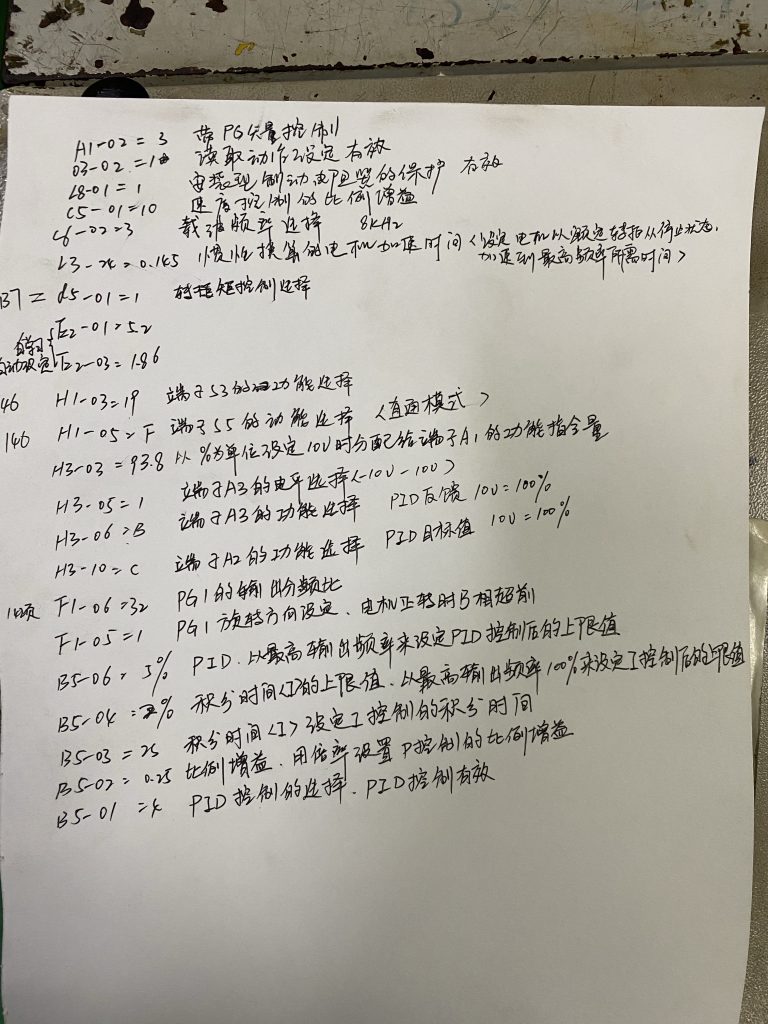 A1-02 = 3 带PG矢量控制
03-02 = 1 读取动作设定有效
L8-01 = 1 安装型制动电阻器的保护 有效
C5-01 = 10 速度控制的比例增益
C6-02 = 3 载波频率选择 8KHz
L3-24 = 0.145 惯性换算的电机加速时间 <设定电机以额定转矩从停止状态,
加速到最高频率所需时间>
B7 = d5-01 = 1 转矩控制选择
自学习 E2-01 = 5.2
自动设定 E2-03 = 1.86
146 H1-03 = 19 端子S3的功能选择
146 H1-05 = F 端子S5的功能选择 <直通模式>
H3-03 = 93.8 以%为单位设定10V时分配给端子A1的功能指令量
H3-05 = 1 端子A3的电平选择 <-10V-10V>
H3-06 = B 端子A3的功能选择 PID反馈 10V=100%
H3-10 = C 端子A2的功能选择 PID目标值 10V=100%
F1-06 = 32 PG1的输出分频比
F1-05 = 1 PG1旋转方向设定、电机正转时B相超前
B5-06 = 5% PID、以最高输出频率来设定PID控制后的上限值
B5-04 = % 积分时间<I>的上限值、以最高输出频率100%来设定I控制后的上限值
B5-03 = 2s 积分时间<I>设定I控制的积分时间
B5-02 = 0.25 比例增益、用倍率设置P控制的比例增益
B5-01 = 4 PID控制的选择、PID控制有效